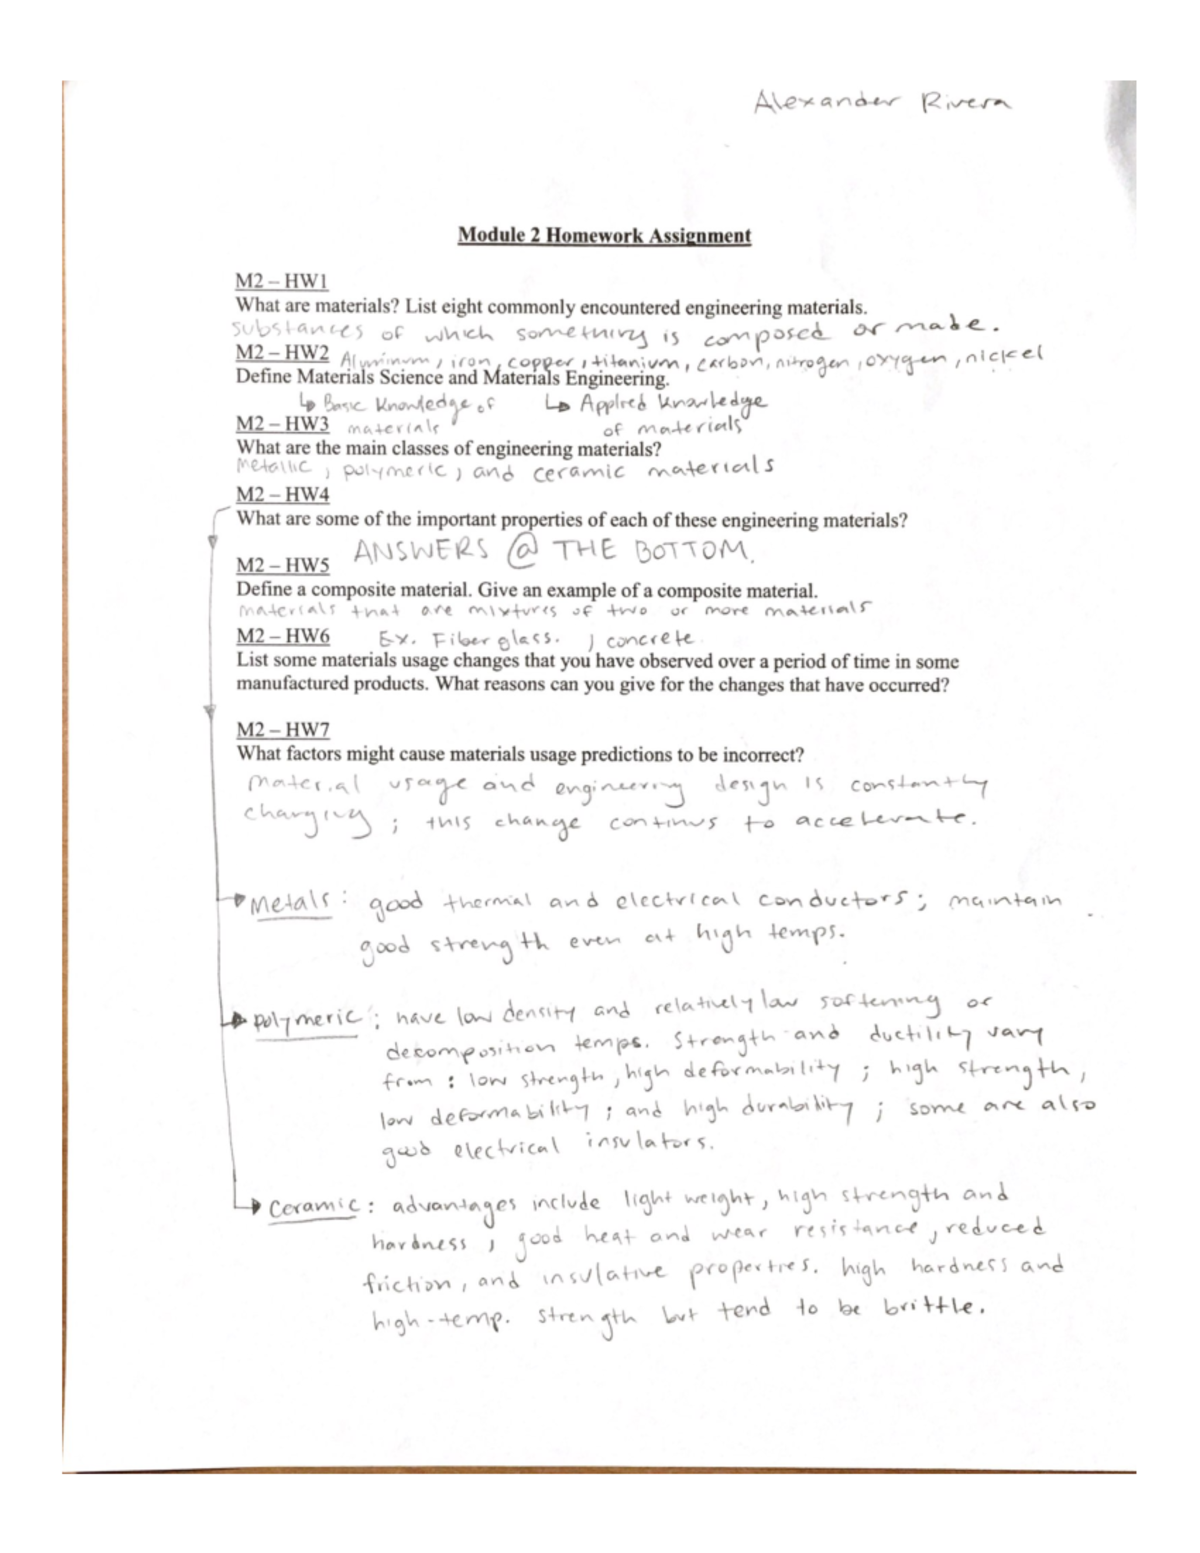 Alexander Rivera
Module 2 Homework Assignment
M2 – HW1
What are materials? List eight commonly encountered engineering materials.
substances of which something is composed or made.
M2 – HW2 Aluminum, iron, copper, titanium, carbon, nitrogen, oxygen, nickel
Define Materials Science and Materials Engineering.
↳ Basic Knowledge of ↳ Applied Knowledge
M2 – HW3 materials of materials
What are the main classes of engineering materials?
Metallic, polymeric, and ceramic materials
M2 – HW4
What are some of the important properties of each of these engineering materials?
ANSWERS @ THE BOTTOM.
M2 – HW5
Define a composite material. Give an example of a composite material.
materials that are mixtures of two or more materials
M2 – HW6 Ex. Fiberglass. , concrete
List some materials usage changes that you have observed over a period of time in some
manufactured products. What reasons can you give for the changes that have occurred?
M2 – HW7
What factors might cause materials usage predictions to be incorrect?
Material usage and engineering design is constantly
changing ; this change continus to accelerate.
Metals : good thermal and electrical conductors ; maintain
good strength even at high temps.
polymeric : have low density and relatively low softening or
decomposition temps. Strength and ductility vary
from : low strength, high deformability ; high strength,
low deformability ; and high durability ; some are also
good electrical insulators.
Ceramic : advantages include light weight, high strength and
hardness , good heat and wear resistance, reduced
friction, and insulative properties. high hardness and
high-temp. strength but tend to be brittle.